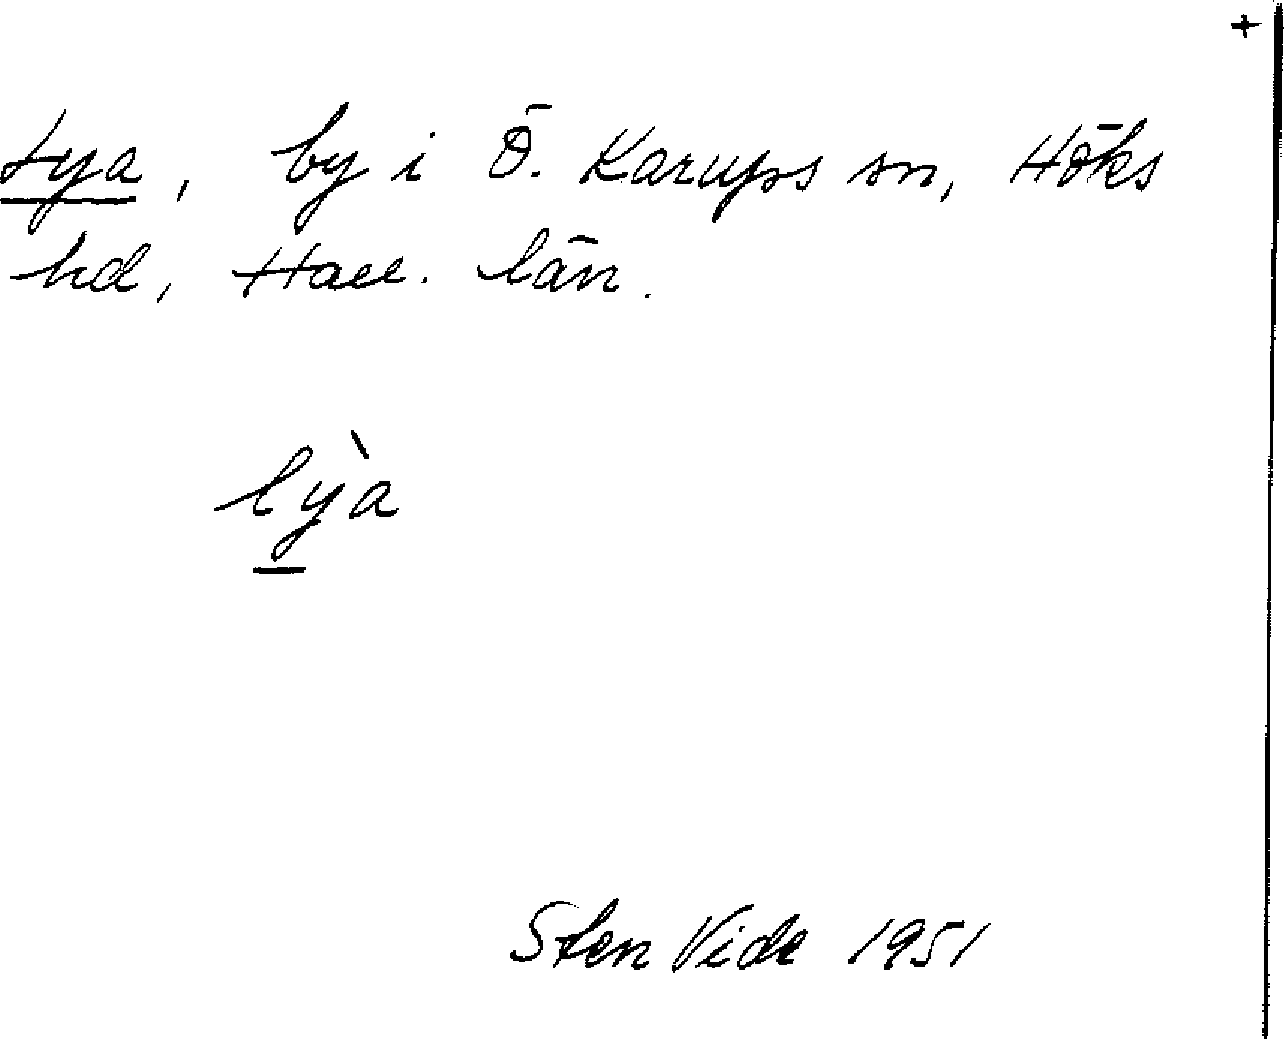 +
Lya, by i Ö. Karups sn, Höks
hd, Hall. län.
lỳ̲a
Sten Vide 1951